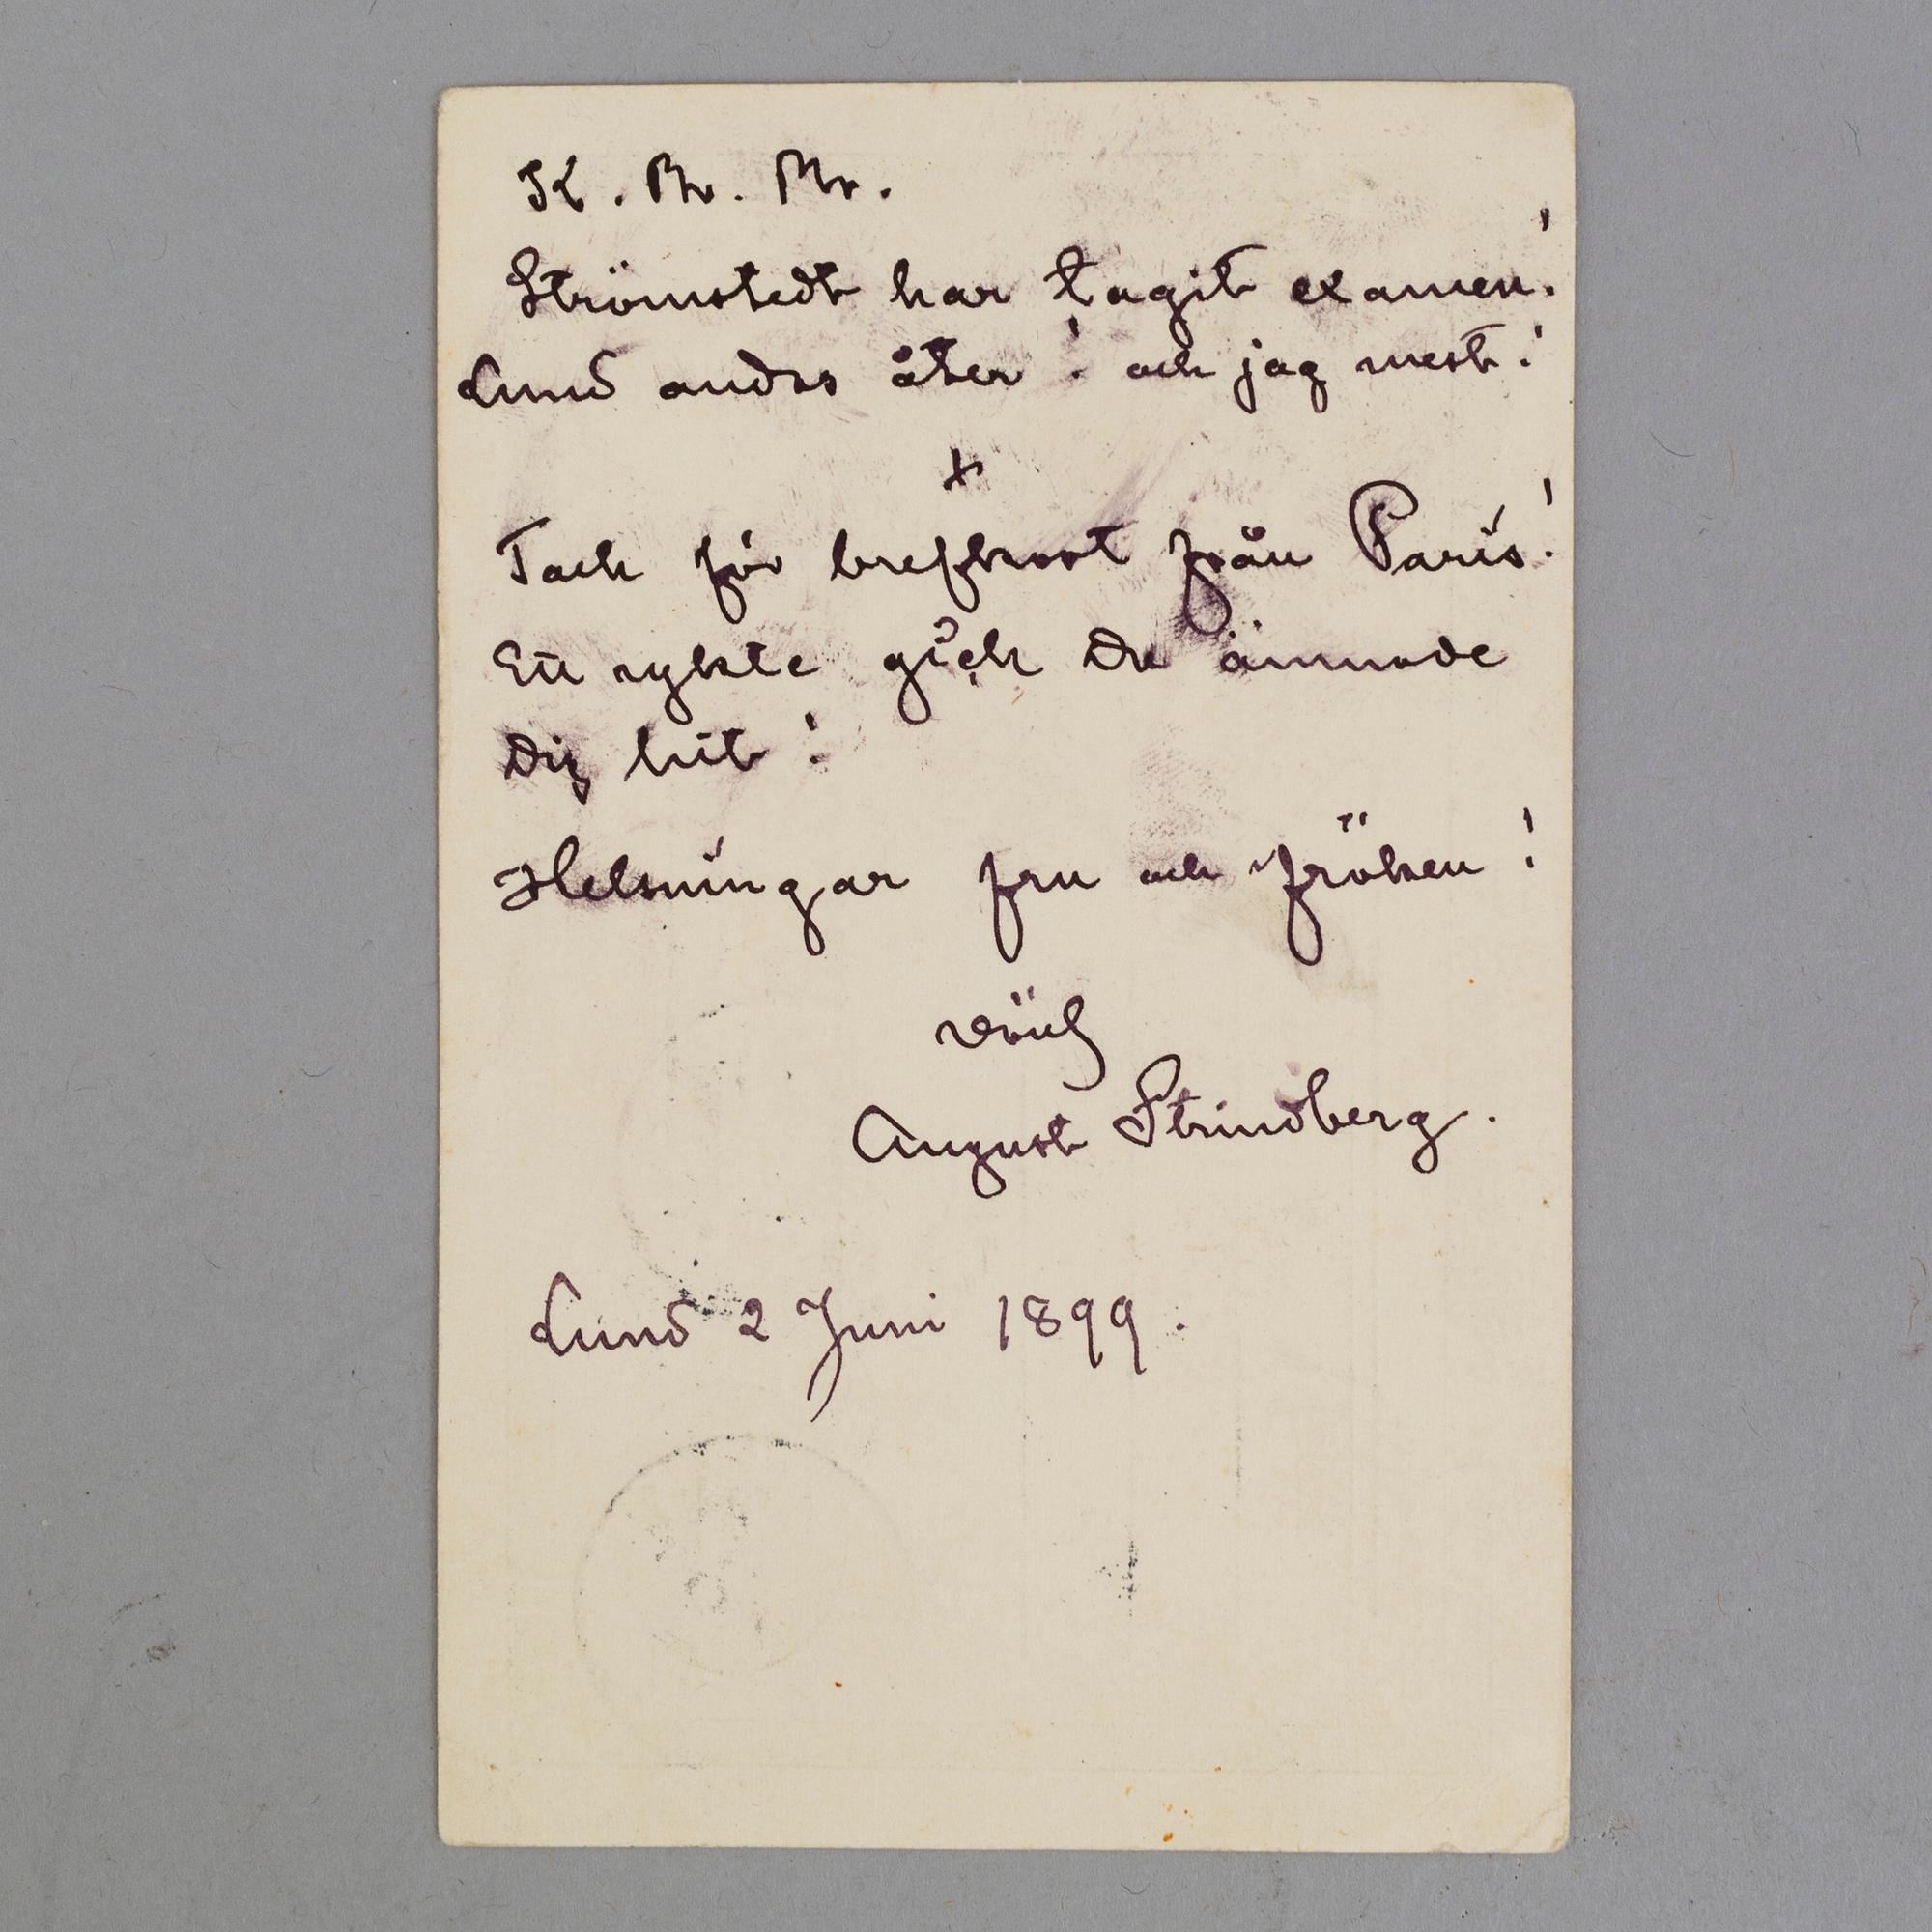 K. Br. Br.
Strömstedt har tagit examen!
Lund andas åter! och jag mest!
+
Tack för brefkort från Paris!
Ett rykte gick Du ämnade
Dig hit!
Helsningar fru och fröken!
August Strindberg.
Lund 2 Juni 1899.